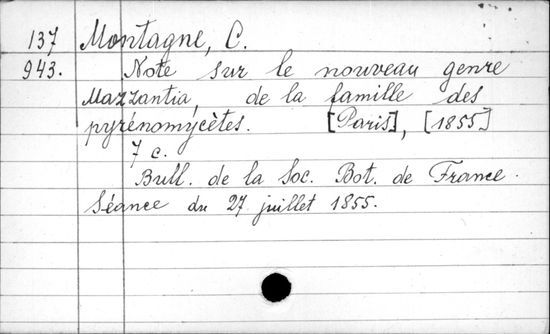 137 Montagne, C.
943. Note sur le nouveau genre
Mazzantia, de la famille des
pyrénomycètes. [Paris], [1855]
7 c.
Bull. de la Soc. Bot. de France.
Séance du 27 juillet 1855.